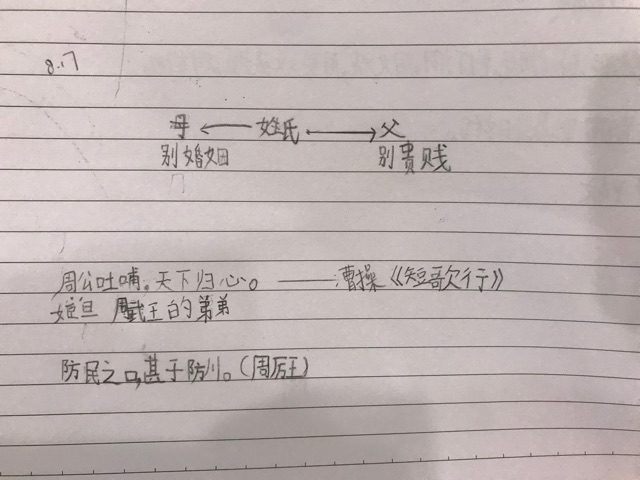 8.17
母 ← 姓氏 → 父
别婚姻 别贵贱
周公吐哺。天下归心。——曹操《短歌行》
姬旦 周武王的弟弟
防民之口,甚于防川。(周厉王)